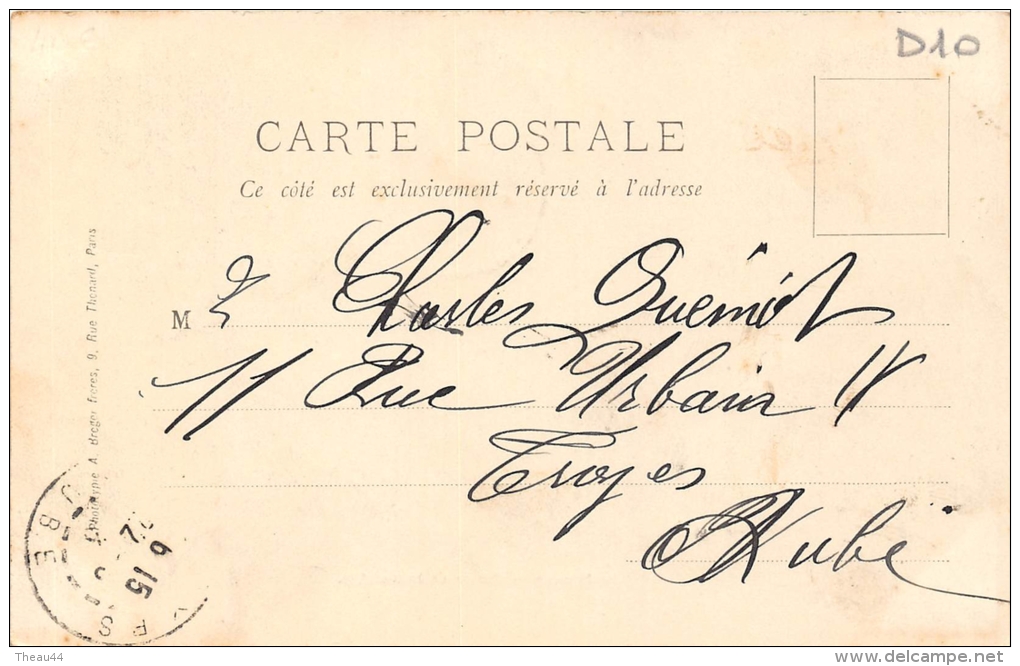 D10
CARTE POSTALE
Ce côté est exclusivement réservé à l'adresse
M r Charles Quémiot
11 Rue Urbain IV
Troyes
Aube
Phototypie A. Breger frères, 9, Rue Thénard, Paris
BE
6 15
Theau44
www.delcampe.net